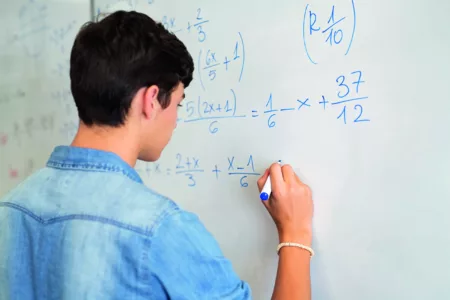 x + 2/3
(R 1/10)
(6x/5 + 1)
5(2x+1)/6 = 1/6 - x + 37/12
+ x = 2+x/3 + x-1/6